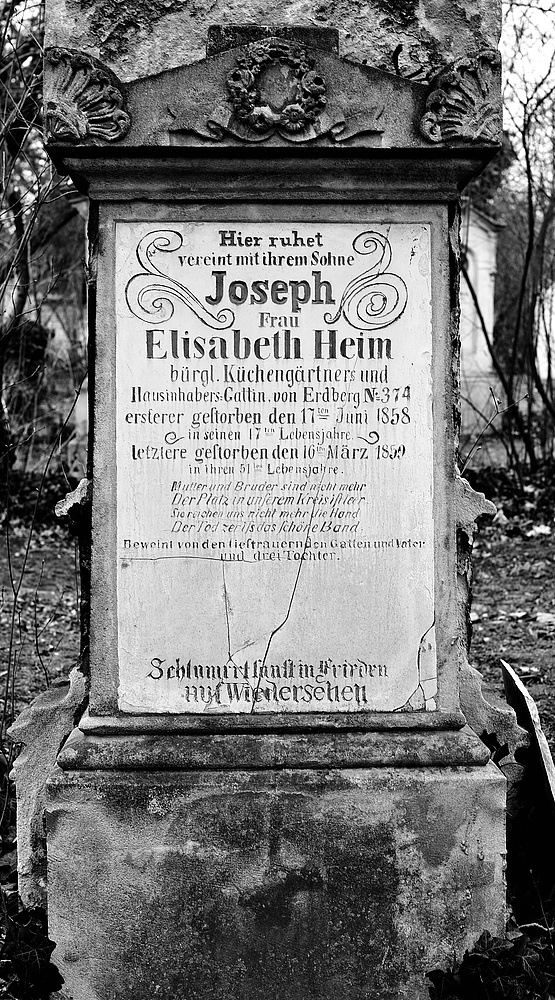 Hier ruhet
vereint mit ihrem Sohne
Joseph
Frau
Elisabeth Heim
bürgl. Küchengärtners und
Hausinhabers-Gattin. von Erdberg No. 374
ersterer gestorben den 17ten Juni 1858
in seinen 17ten Lebensjahre.
letztere gestorben den 16ten März 1859
in ihren 51ten Lebensjahre.
Mutter und Bruder sind nicht mehr
Der Platz in unserem Kreis ist leer
Sie reichen uns nicht mehr die Hand
Der Tod zerriß das schöne Band.
Beweint von den tieftrauernden Gatten und Vater
und drei Töchter.
Schlummert sanft in Frieden
auf Wiedersehen